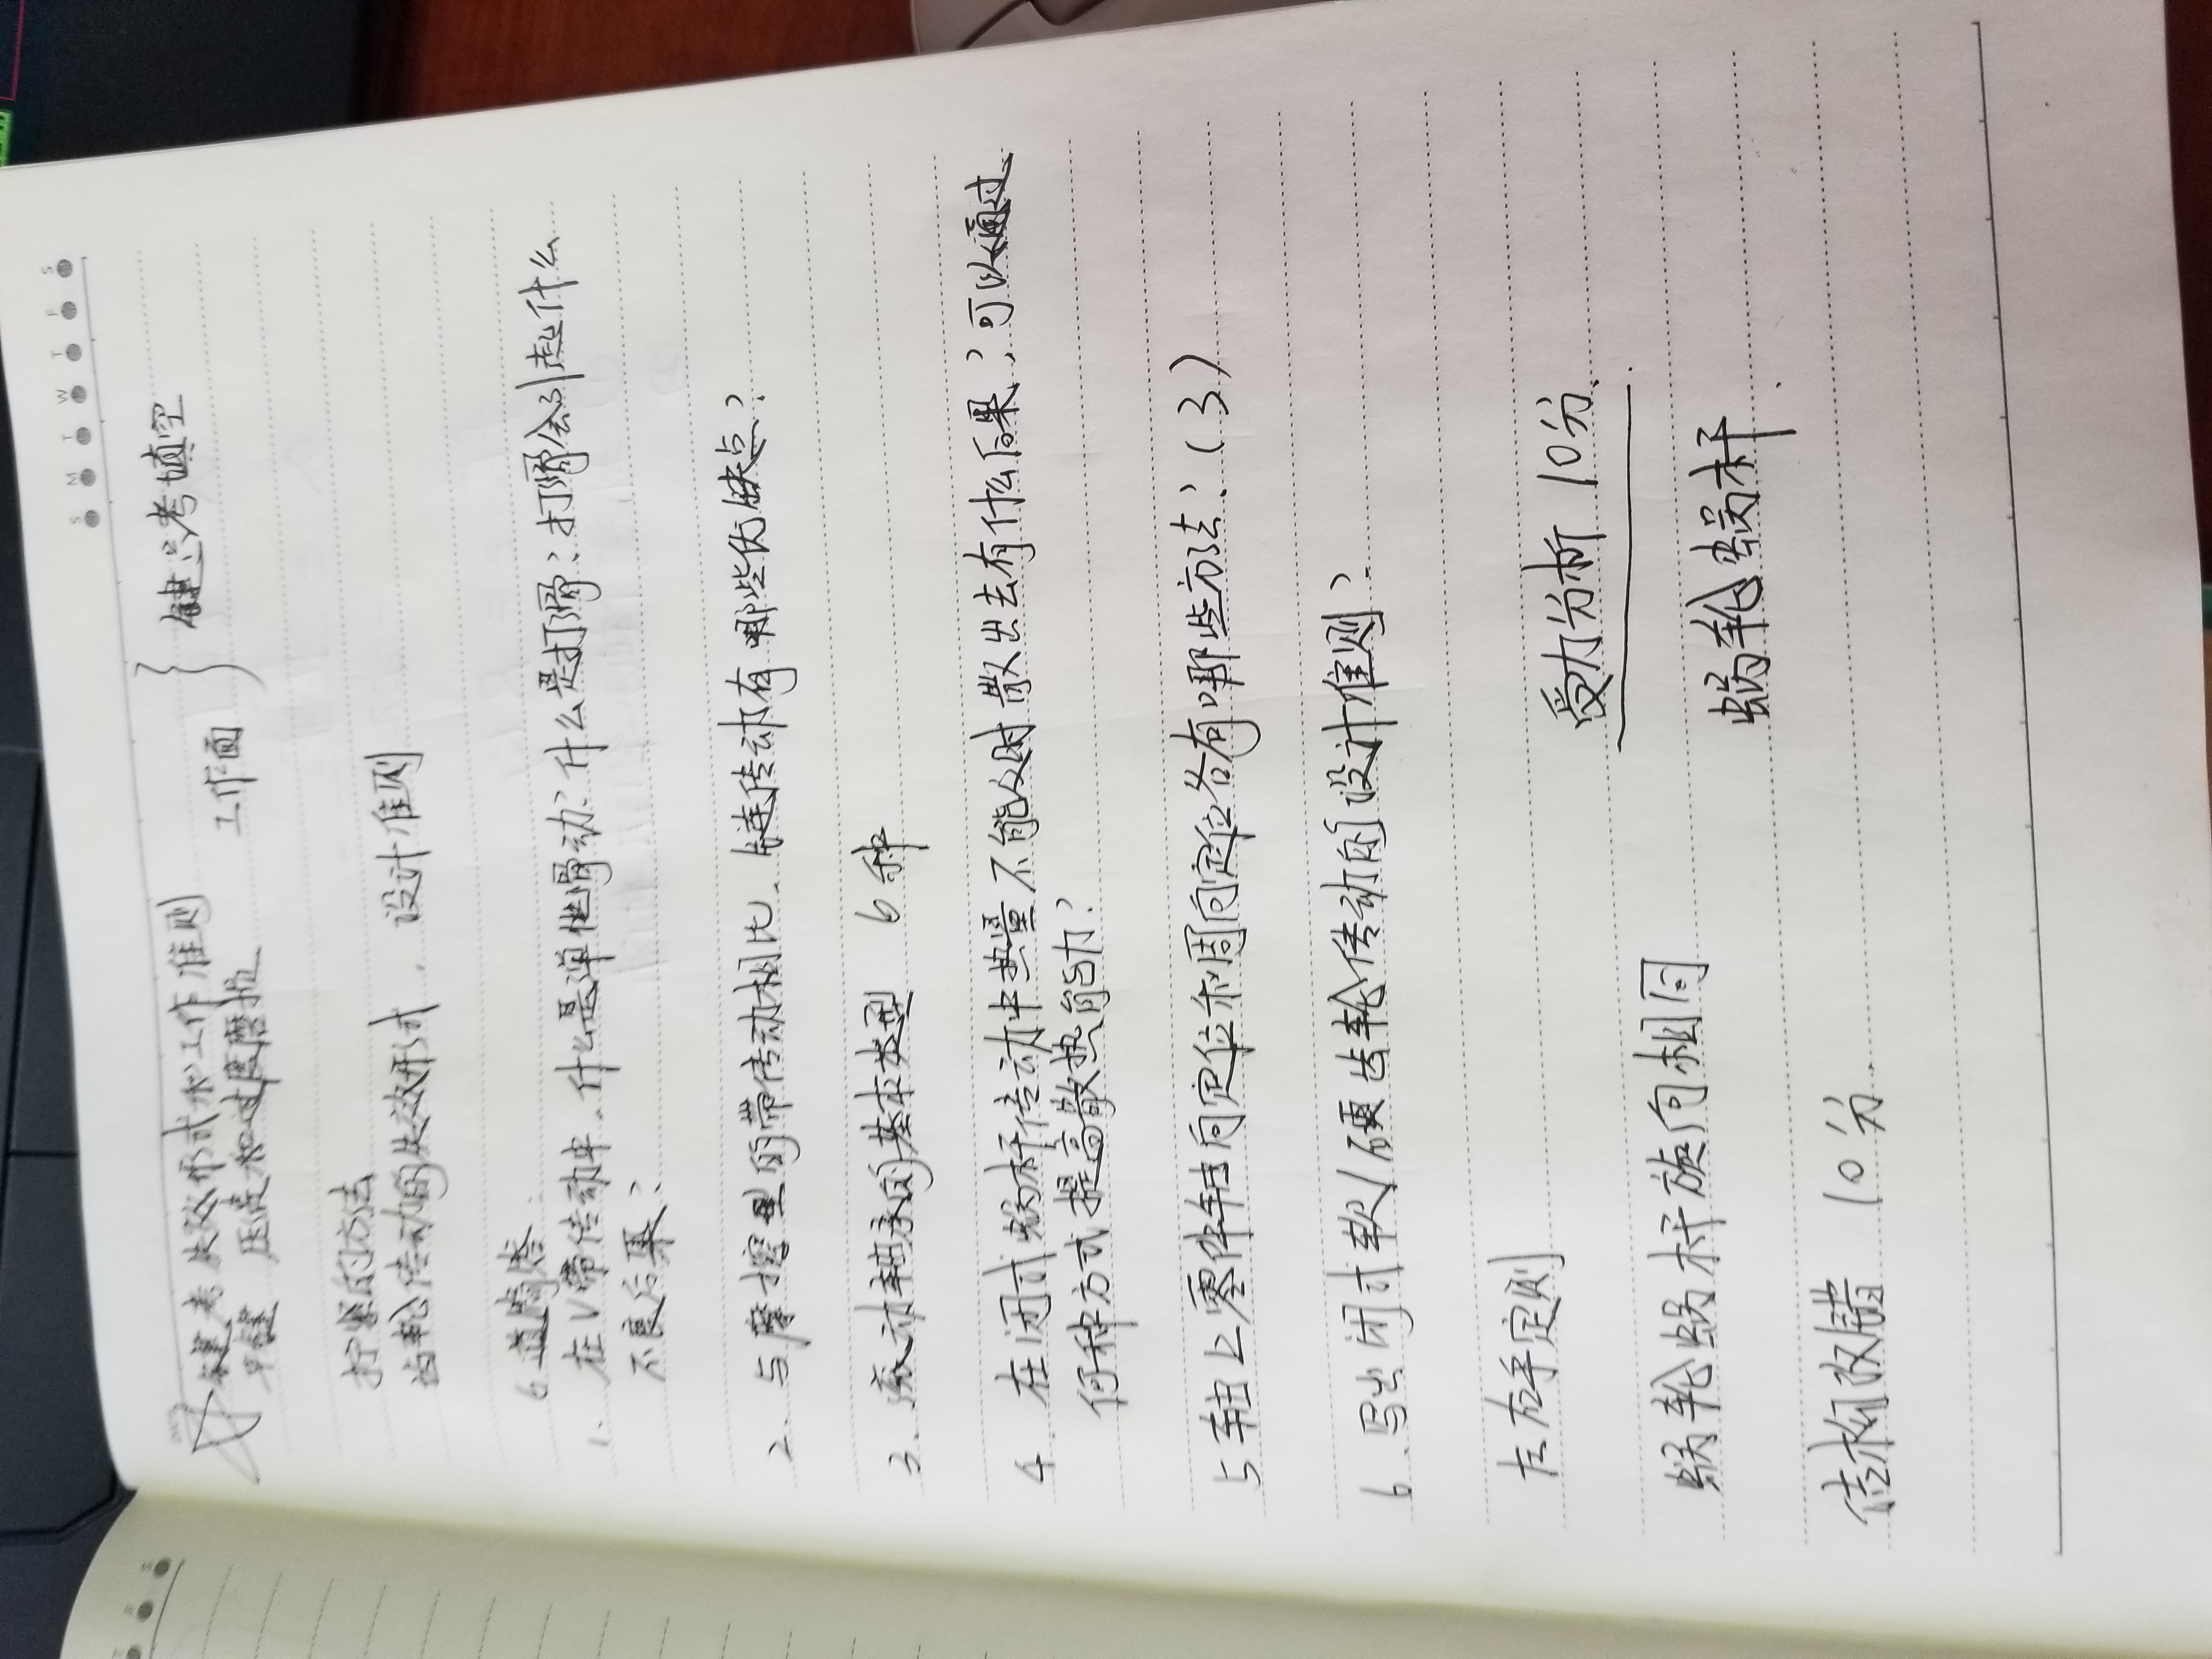 S M T W T F S
键考失效形式和工作准则
平键 压溃和过度磨损 工作面
键只考填空
拧紧的方法
齿轮传动的失效形式、设计准则
6道简答
1、在V带传动中、什么是弹性滑动?什么是打滑?打滑会引起什么
不良后果?
2、与摩擦型的带传动相比、链传动有哪些优缺点?
3、滚动轴承的基本类型 6种
4、在闭式蜗杆传动中热量不能及时散出去有什么后果?可以通过
何种方式提高散热能力?
5 轴上零件轴向定位和周向定位各有哪些方法?(3)
6、写出闭式软/硬齿轮传动的设计准则?
左右手定则
受力分析 10分.
蜗轮蜗杆旋向相同
蜗轮蜗杆.
结构改错 10分.